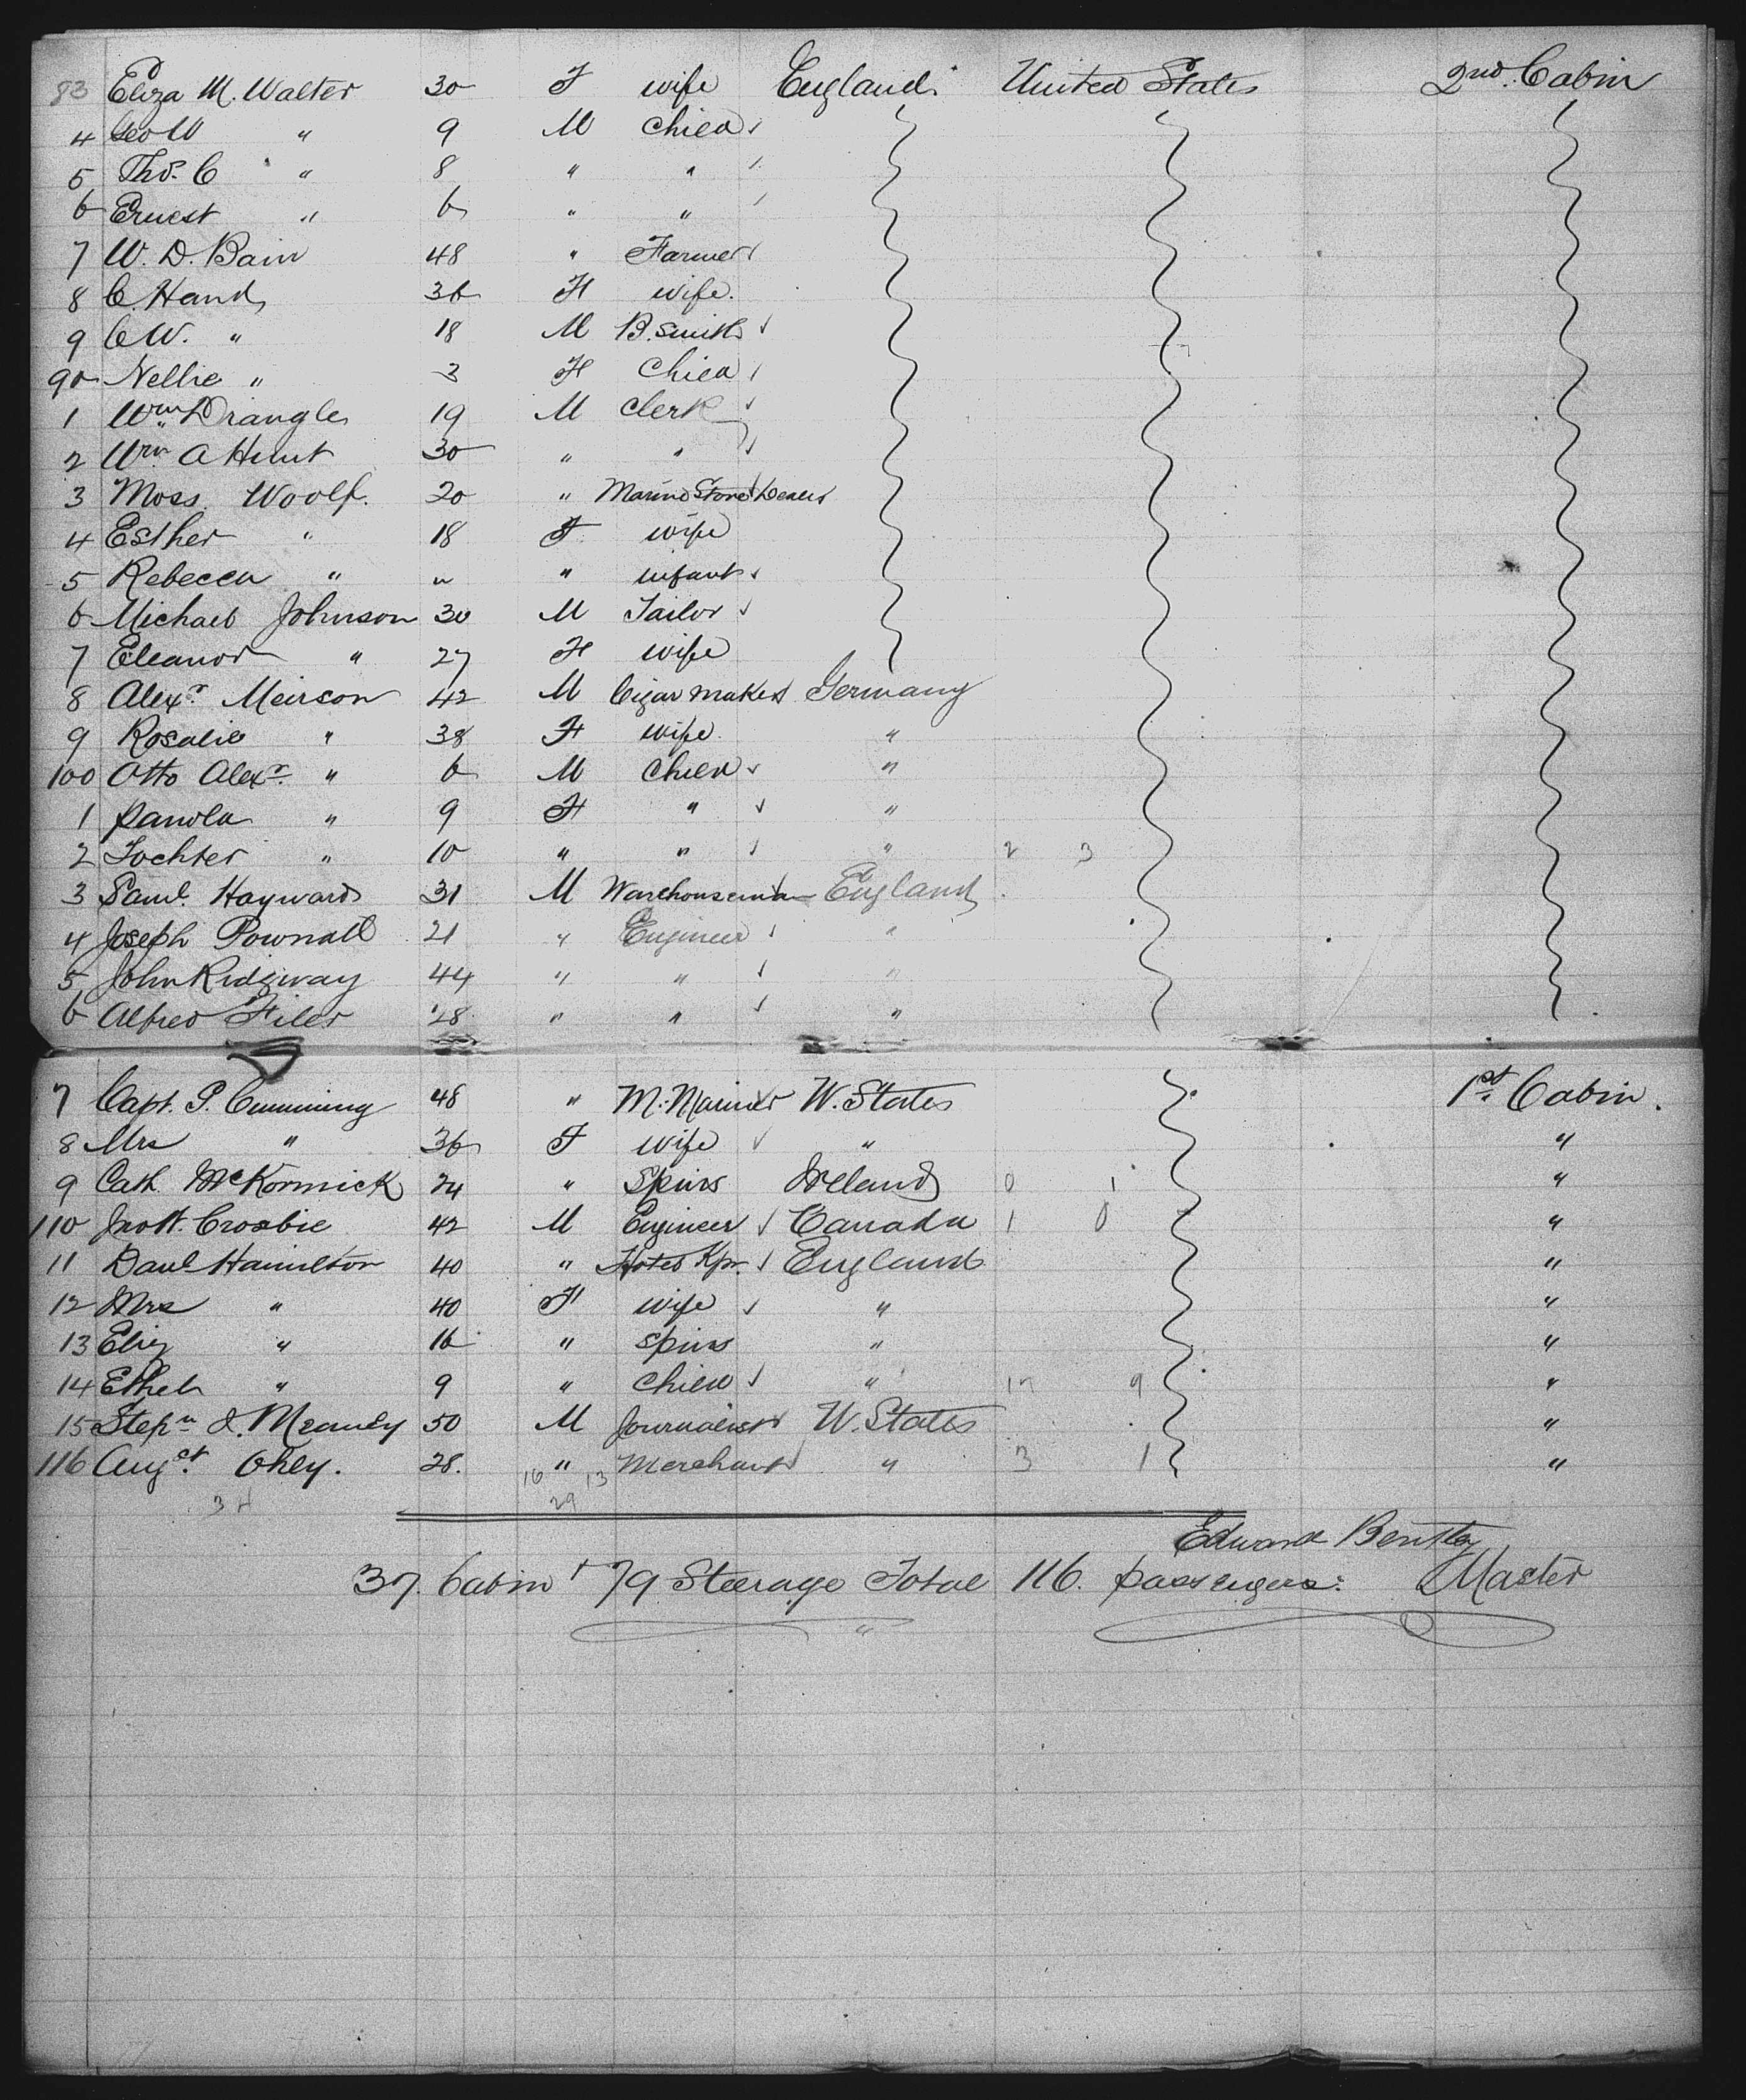 83 Eliza M. Walter 30 F wife England. United States 2nd. Cabin
4 Geo W " 9 M Child
5 Thos. C " 8 " "
6 Ernest " 6 " "
7 W. D. Bain 48 " Farmer
8 C. Hand 36 F wife.
9 C W. " 18 M B. Smith
90 Nellie " 3 F Child
1 Wm Drangle 19 M Clerk
2 Wm A Hunt 30 " "
3 Moss Woolf. 20 " Marine Store Dealer
4 Esther " 18 F wife
5 Rebecca " " " infant
6 Michael Johnson 30 M Tailor
7 Eleanor " 27 F wife
8 Alexr. Meirson 42 M Cigar maker Germany
9 Rosalie " 38 F wife. "
100 Otto Alexr. " 6 M Child "
1 Panola " 9 F " "
2 Tochter " 10 " " " 2 3
3 Saml. Hayward 31 M Warehouseman England
4 Joseph Pownall 21 " Engineer "
5 John Ridgway 44 " " "
6 Alfred Filer 28 " " "
7 Capt. P. Cumming 48 " M. Mariner U. States 1st. Cabin.
8 Mrs " 36 F wife " "
9 Cath McKormick 24 " Spins Ireland 0 1 "
110 Jno H. Crosbie 42 M Engineer Canada 1 0 "
11 Danl Hamilton 40 " Hotel Kpr. England "
12 Mrs " 40 F wife " "
13 Eliz " 16 " spins " "
14 Ethel " 9 " Child " 17 9 "
15 Stepn J. Meany 50 M Journalist U. States "
116 Augst. Ohly. 28. " Merchant " 3 1 "
16 13
29
Edward Bentley
37. Cabin + 79 Steerage Total 116. passengers. Master